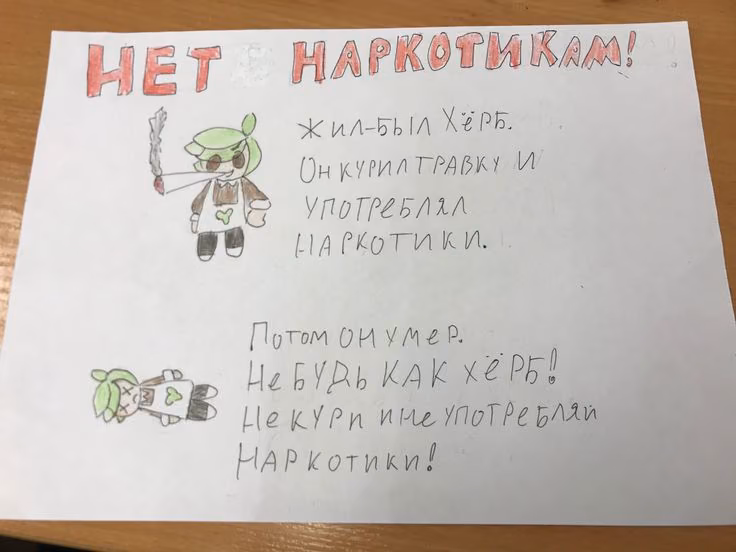 НЕТ НАРКОТИКАМ!
ЖИЛ-БЫЛ ХЁРБ.
ОН КУРИЛ ТРАВКУ И
УПОТРЕБЛЯЛ
НАРКОТИКИ.
ПОТОМ ОН УМЕР.
НЕ БУДЬ КАК ХЁРБ!
НЕ КУРИ И НЕ УПОТРЕБЛЯЙ
НАРКОТИКИ!